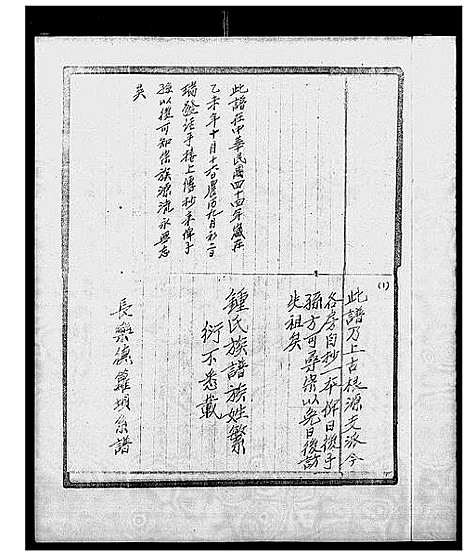 (1)
此譜乃上古根源支派今
各房自抄一本俾日後子
孫方可尋宗以免日後訪
先祖矣
鍾氏族譜族姓繁
衍不悉載
長樂
系譜
此譜在中華民國四十四年歲在
乙未年十月十六日農曆九月初二日
手抄
上傳抄來俾子
孫以後可知宗族源流永無忘
矣